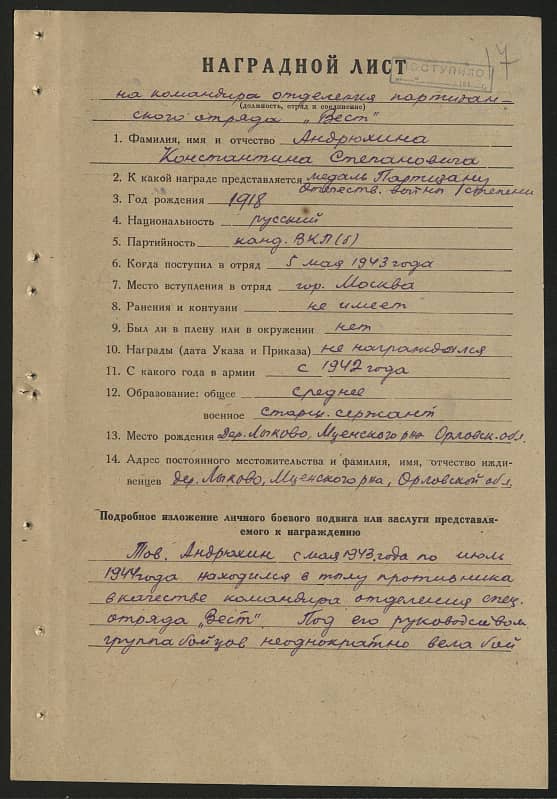 17
ПОСТУПИЛО
НАГРАДНОЙ ЛИСТ
на командира отделения партизан-
(должность, отряд и соединение)
ского отряда „Вест"
1. Фамилия, имя и отчество Андрюхина
Константина Степановича
2. К какой награде представляется медаль Партизану
отечеств. войны 1 степени
3. Год рождения 1918
4. Национальность русский
5. Партийность канд. ВКП(б)
6. Когда поступил в отряд 5 мая 1943 года
7. Место вступления в отряд гор. Москва
8. Ранения и контузии не имеет
9. Был ли в плену или в окружении нет
10. Награды (дата Указа и Приказа) не награждался
11. С какого года в армии с 1942 года
12. Образование: общее среднее
военное старш. сержант
13. Место рождения Дер. Лыково, Мценского рна Орловск. обл.
14. Адрес постоянного местожительства и фамилия, имя, отчество ижди-
венцев Дер. Лыково, Мценского рна, Орловской обл.
Подробное изложение личного боевого подвига или заслуги представля-
емого к награждению
Тов. Андрюхин с мая 1943 года по июль
1944 года находился в тылу противника
в качестве командира отделения спец.
отряда „Вест". Под его руководством
группа бойцов неоднократно вела бой